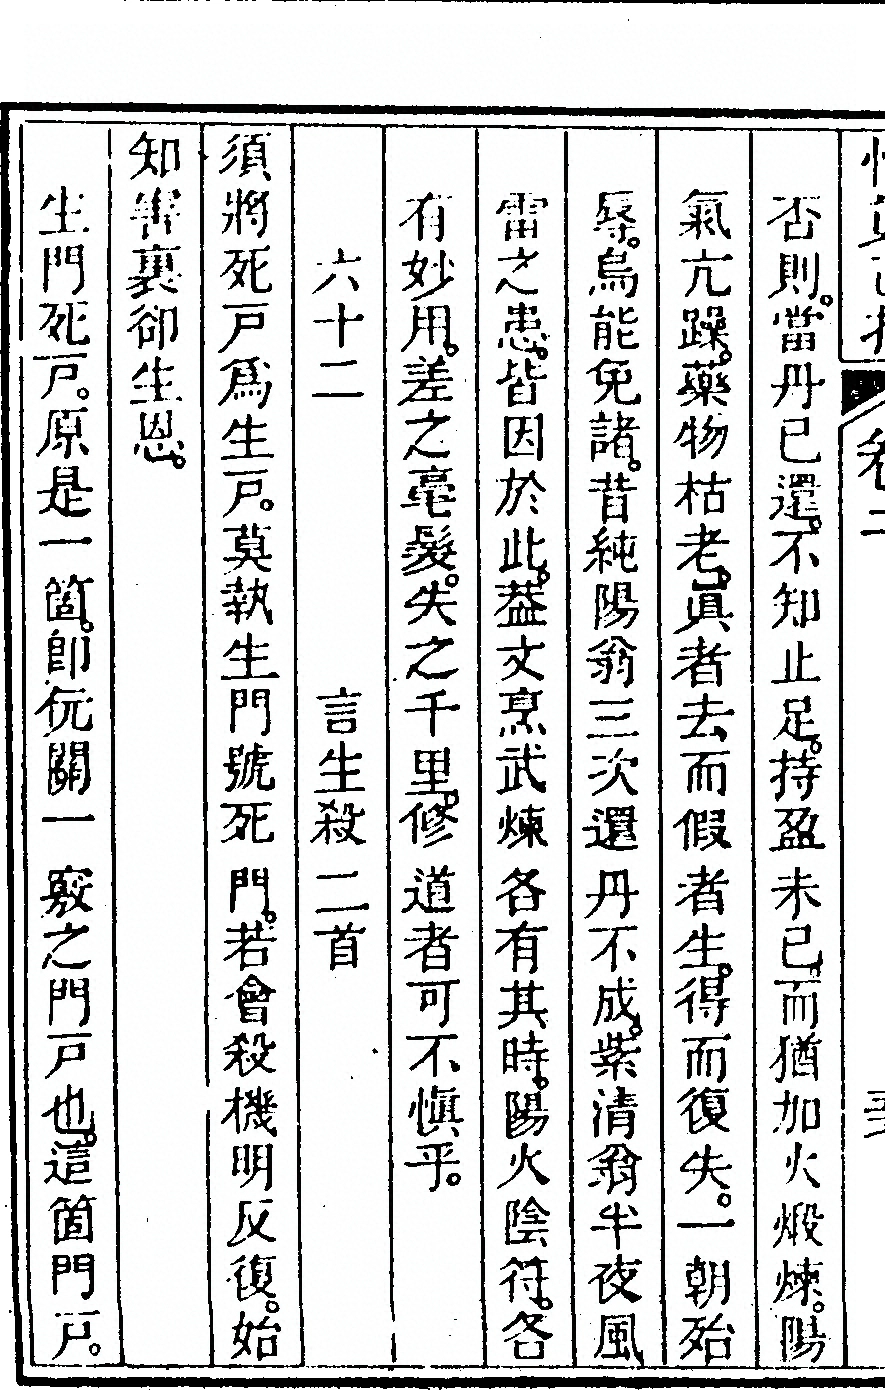 否則。當丹已還。不知止足。持盈未已。而猶加火煅煉。陽
氣亢躁。藥物枯老。眞者去而假者生。得而復失。一朝殆
辱。烏能免諸。昔純陽翁三次還丹不成。紫清翁半夜風
雷之患。皆因於此。葢文烹武煉各有其時。陽火陰符。各
有妙用。差之毫髮。失之千里。修道者可不愼乎。
六十二 言生殺二首
須將死戸爲生戸。莫執生門號死門。若會殺機明反復。始
知害裏卻生恩。
生門死戸。原是一箇。卽元關一竅之門戸也。這箇門戸。